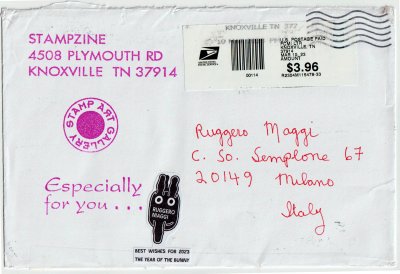 STAMPZINE
4508 PLYMOUTH RD
KNOXVILLE TN 37914
KNOXVILLE TN 377
U.S. POSTAGE PAID
KNOXVILLE, TN
37914
MAR 10, 23
AMOUNT
$3.96
UNITED STATES
POSTAL SERVICE
00114
STAMP ART GALLERY
Ruggero Maggi
C. SO. Semplone 67
20149 Milano
Italy
Especially
for you . . .
RUGGERO
MAGGI
BEST WISHES FOR 2023
THE YEAR OF THE BUNNY